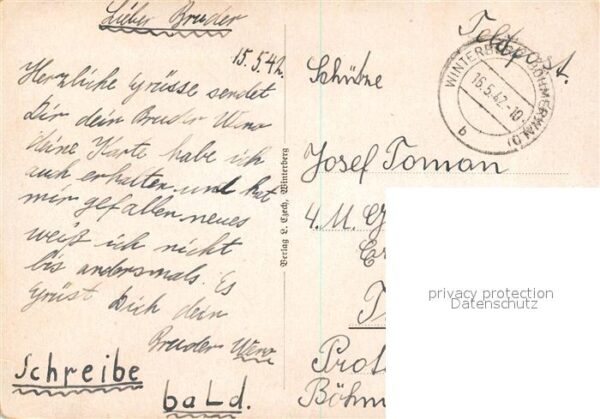 Lieber Bruder
15.5.42.
Herzliche Grüsse sendet
Dir dein Bruder Weno
deine Karte habe ich
auch erhalten und hat
mir gefallen neues
weiß ich nicht
bis andersmals. Es
Grüst Dich dein
Bruder Weno
Schreibe
baLd.
Verlag L. Czech, Winterberg
Feldpost.
WINTERBERG (BÖHMERWALD)
16.5.42.-10
b
Schütze
Josef Toman
4. M. G
Prot
Böhm
privacy protection
Datenschutz